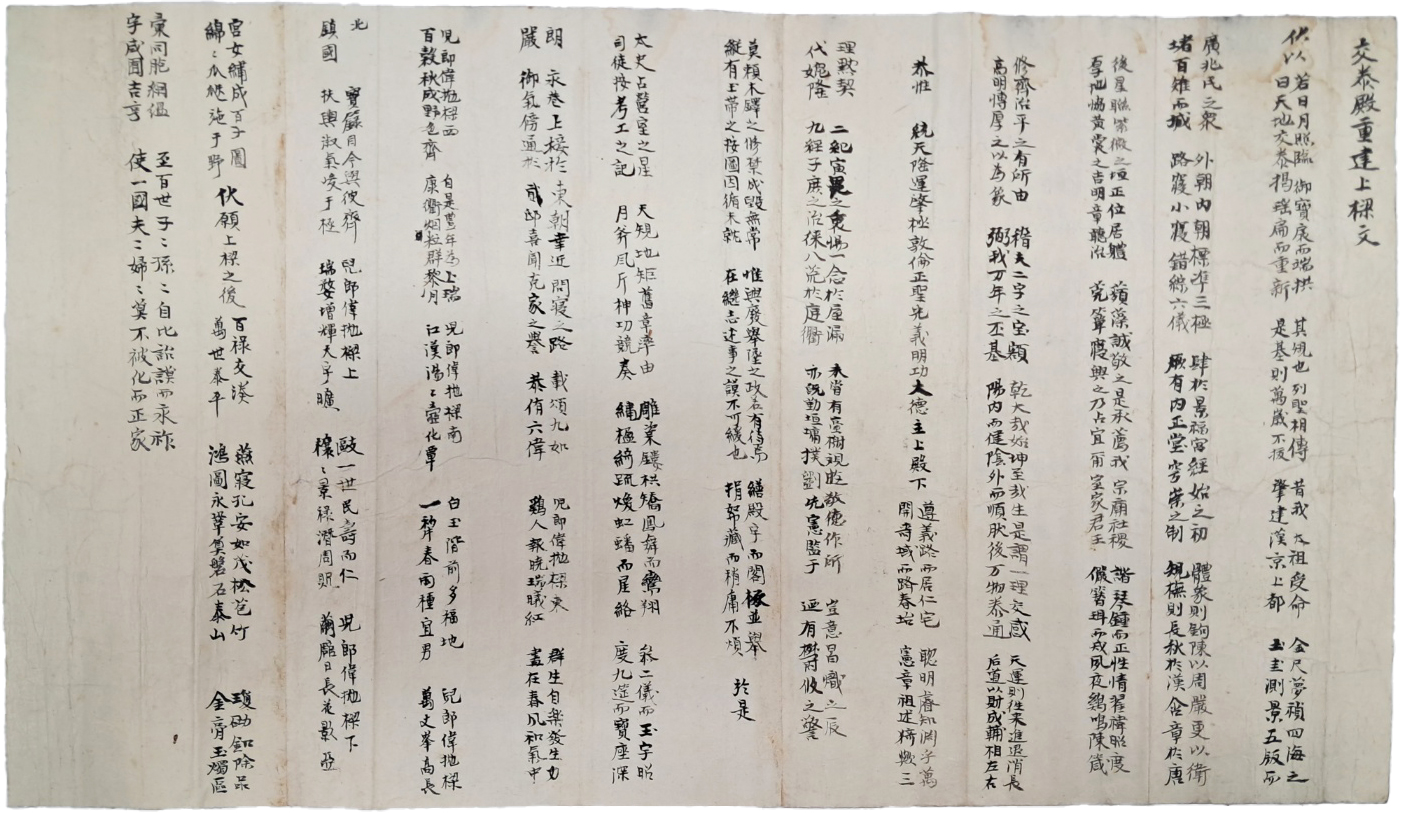 交泰殿重建上樑文
伏以
若日月照臨御寶扆而端拱
曰天地交泰揭瑤扁而重新
其規也列聖相傳
是基則萬歲不拔
昔我太祖受命
肇建漢京上都
金尺夢禎四海之
玉圭測景五版而
廣兆民之衆
堵百雉而城
外朝內朝標準三極
路寢小寢錯綜六儀
肆於景福宮經始之初
厥有內正堂穹崇之制
體象則鉤陳以周嚴更以衛
規橅則長秋於漢含章於唐
後星聯紫微之垣正位居軆
厚地協黃裳之吉明章聽治
蘋藻誠敬之是承薦我宗廟社稷
莞簟寢興之乃占宜爾室家君王
諧琴鍾而正性情翟褘昭度
儆簪珥而戒夙夜鷄鳴陳箴
修齊治平之有所由
高明慱厚之以爲象
稽夫二字之宝顏
弼我万年之丕基
乾大哉始坤至哉生是謂一理交感
陽內而健陰外而順肰後万物泰通
天運則徃來進退消長
后道以財成輔相左右
恭惟
統天隆運肇極敦倫正聖光義明功大德主上殿下
遵義路而居仁宅
開壽城而路春坮
聡明睿知淵乎萬
憲章祖述精戦三
理默契
代媲隆
二紀寅畏之衷惕一合於屋漏
九経子庶之治徠八荒於庭衢
未嘗有䑓榭視眺敎德作所
亦旣勤垣墉撲劉先憲監于
豈意昌熾之辰
迺有欝攸之警
莫賴木鐸之修葺成毀無常
縱有玉蒂之按圖因循未就
惟興廢舉墜之政若有待焉
在継志述事之謨不可緩也
繕殿宇而閣極並舉
捐帑藏而稍庸不煩
於是
太史占營室之星
司徒按考工之記
天規地矩舊章率由
月斧風斤神功競奏
雕楶鏤栱矯鳳舞而鸞翔
繡楹綺疏煥虹蟠而星絡
叅二儀而玉宇昭
度九筵而寶座深
朗
嚴
永巷上接於東朝幸近問寢之路
御氣傍通於貳邸喜聞克家之譽
載頌九如
恭侑六偉
兒郎偉抛樑東
鷄人報曉瑞曦紅
群生自樂發生力
盡在春風和氣中
兒郎偉抛樑西
百糓秋成野色齊
自是豊年爲上瑞
康衢烟粒群黎月
兒郎偉抛樑南
江漢湯〻壼化覃
白玉階前多福地
一犂春雨種宜男
兒郎偉抛樑
萬丈峯高長
北
鎮國
寶籙自今與彼齊
扶輿淑氣峻于極
兒郎偉抛樑上
瑞婺增輝天宇曠
敺一世民壽而仁
穰〻景祿潛周貺
兒郎偉抛樑下
繭館日長花影亞
宮女繡成百子圖
綿〻瓜瓞施于野
伏願上樑之後
百祿交湊
萬世泰平
燕寢孔安如茂松苞竹
鴻圖永鞏奠磐石泰山
瓊砌釦除品
金膏玉燭區
彙同胞絪縕
字咸囿吉亨
至百世子〻孫〻自比詒謨而永祚
使一國夫〻婦〻莫不被化而正家